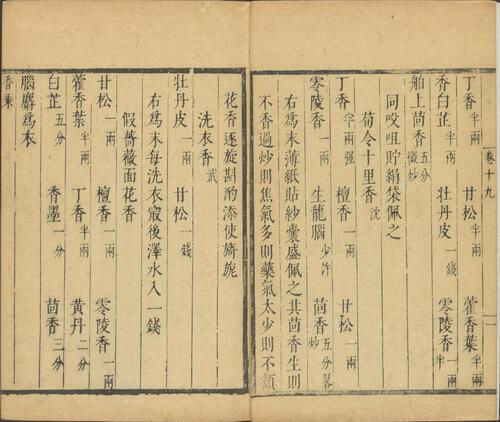 卷十九
丁香半兩 甘松半兩 藿香葉半兩
香白芷半兩 牡丹皮一錢 零陵香一兩半
舶上茴香五分微炒
同㕮咀貯絹袋佩之
荀令十里香沈
丁香半兩强 檀香一兩 甘松一兩
零陵香一兩 生龍腦少許 茴香五分畧炒
右爲末薄紙貼紗囊盛佩之其茴香生則
不香過炒則焦氣多則藥氣太少則不類
花香逐旋斟酌添使旖旎
洗衣香武
牡丹皮一兩 甘松一錢
右爲末每洗衣最後澤水入一錢
假薔薇面花香
甘松一兩 檀香一兩 零陵香一兩
藿香葉半兩 丁香半兩 黄丹二分
白芷五分 香墨一分 茴香三分
腦麝爲衣
香乘